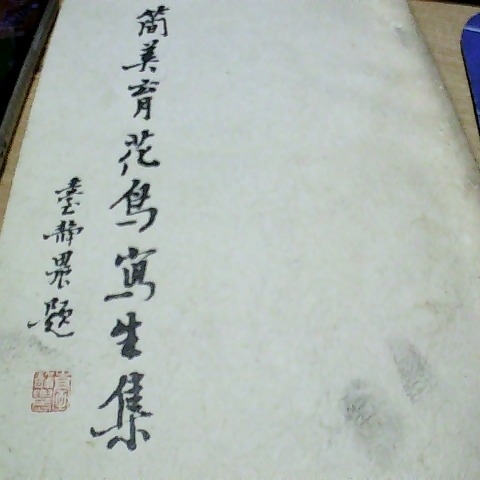 簡美育花鳥寫生集
臺靜農題